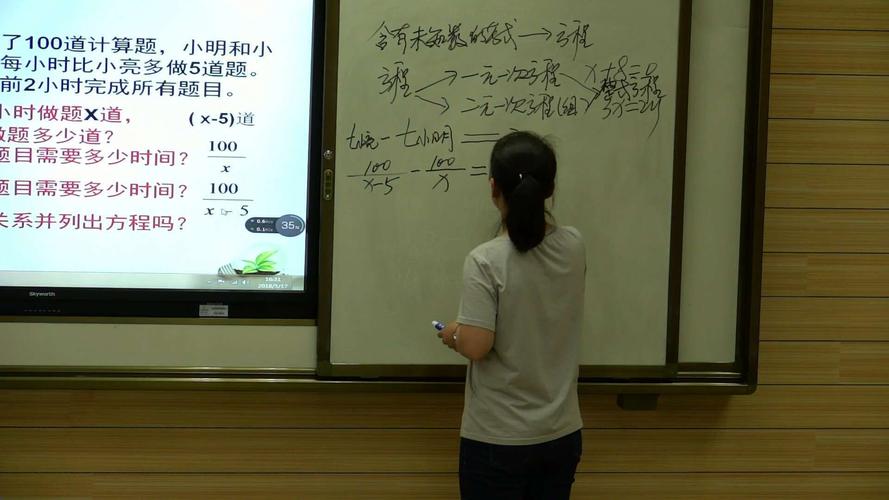 了100道计算题，小明和小
每小时比小亮多做5道题。
前2小时完成所有题目。
小时做题X道， (x-5)道
做题多少道？
题目需要多少时间？ 100/x
题目需要多少时间？ 100/x-5
关系并列出方程吗？
35
16:21
2018/5/17
Skyworth
含有未知数的等式→方程
方程
一元一次方程
x+8=0
整式方程
二元一次方程(组)
t小亮-t小明=
100/x-5 - 100/x =